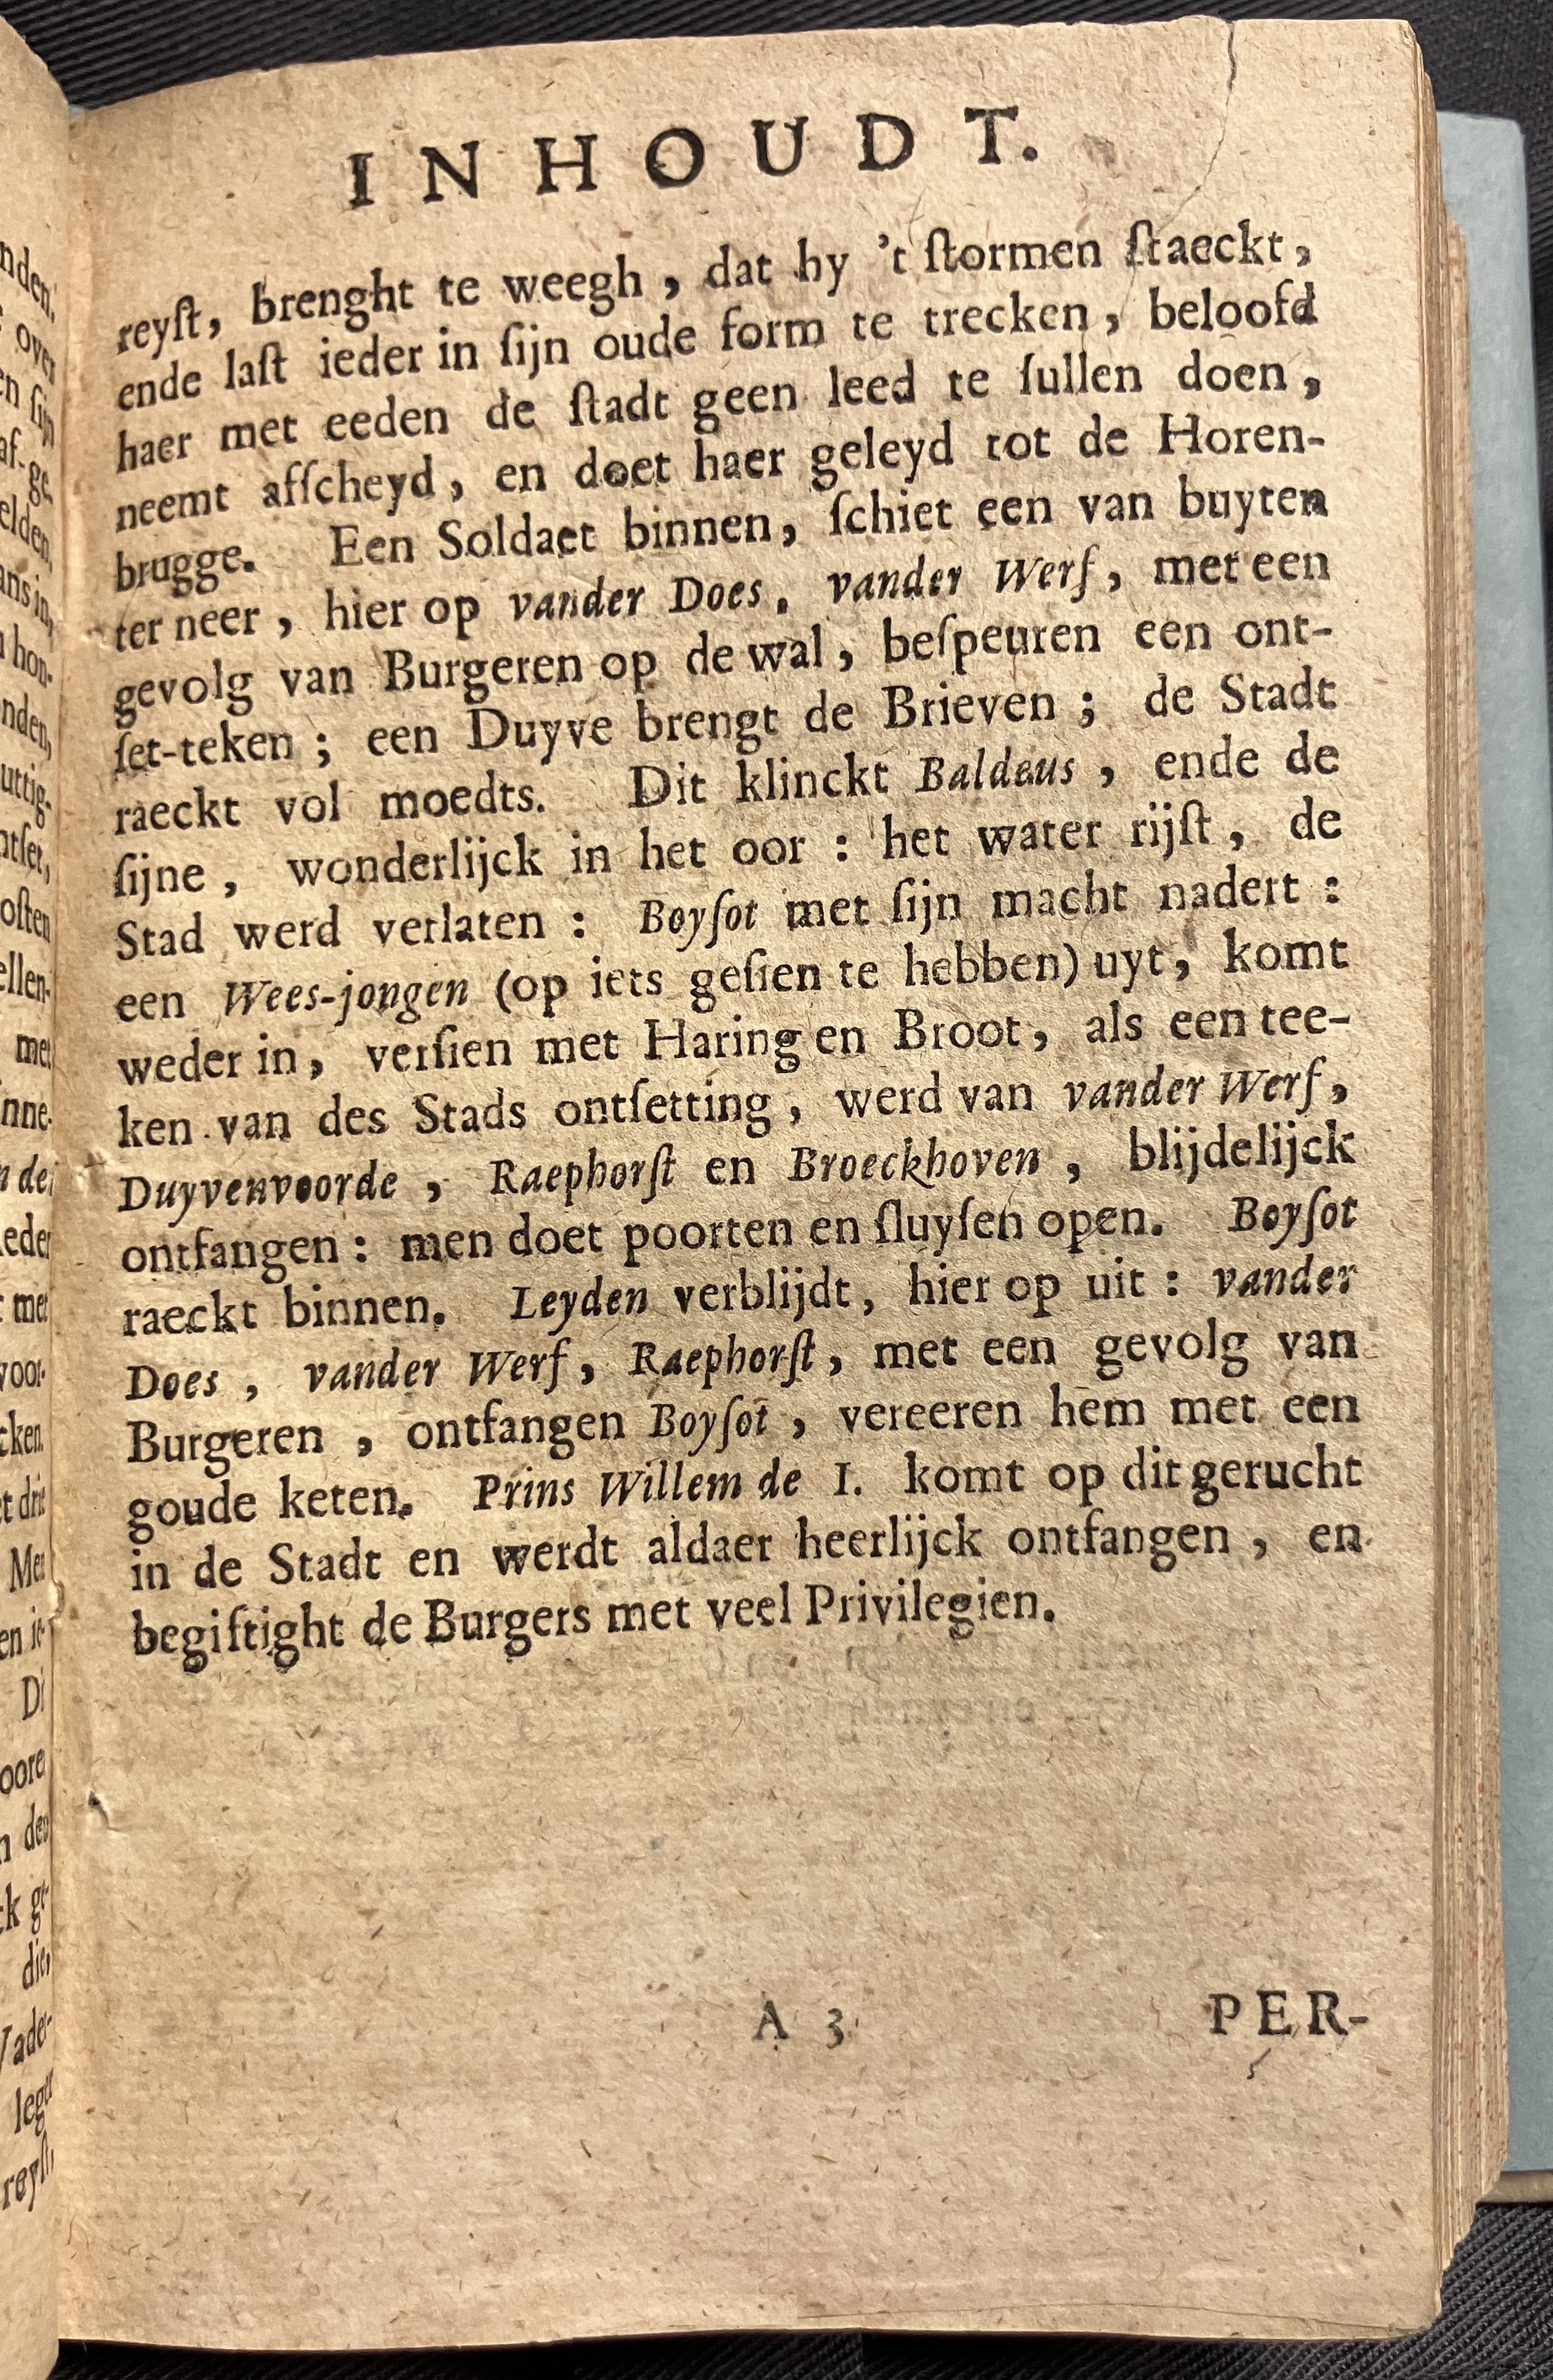 INHOUDT.
reyſt, brenght te weegh, dat hy 't ſtormen ſtaeckt,
ende laſt ieder in ſijn oude form te trecken, beloofd
haer met eeden de ſtadt geen leed te ſullen doen,
neemt afſcheyd, en doet haer geleyd tot de Horen-
brugge. Een Soldaet binnen, ſchiet een van buyten
ter neer, hier op vander Does, vander Werf, met een
gevolg van Burgeren op de wal, beſpeuren een ont-
ſet-teken; een Duyve brengt de Brieven; de Stadt
raeckt vol moedts. Dit klinckt Baldeus, ende de
ſijne, wonderlijck in het oor: het water rijſt, de
Stad werd verlaten: Boyſot met ſijn macht nadert:
een Wees-jongen (op iets geſien te hebben) uyt, komt
weder in, verſien met Haring en Broot, als een tee-
ken van des Stads ontſetting, werd van vander Werf,
Duyvenvoorde, Raephorſt en Broeckhoven, blijdelijck
ontfangen: men doet poorten en ſluyſen open. Boyſot
raeckt binnen. Leyden verblijdt, hier op uit: vander
Does, vander Werf, Raephorſt, met een gevolg van
Burgeren, ontfangen Boyſot, vereeren hem met een
goude keten. Prins Willem de I. komt op dit gerucht
in de Stadt en werdt aldaer heerlijck ontfangen, en
begiftight de Burgers met veel Privilegien.
A 3 PER-